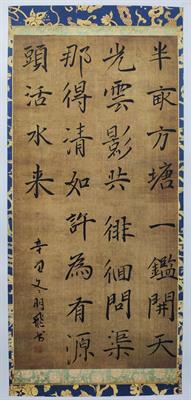 半畝方塘一鑑開天
光雲影共徘徊問渠
那得清如許為有源
頭活水来
辛丑冬羽飛书